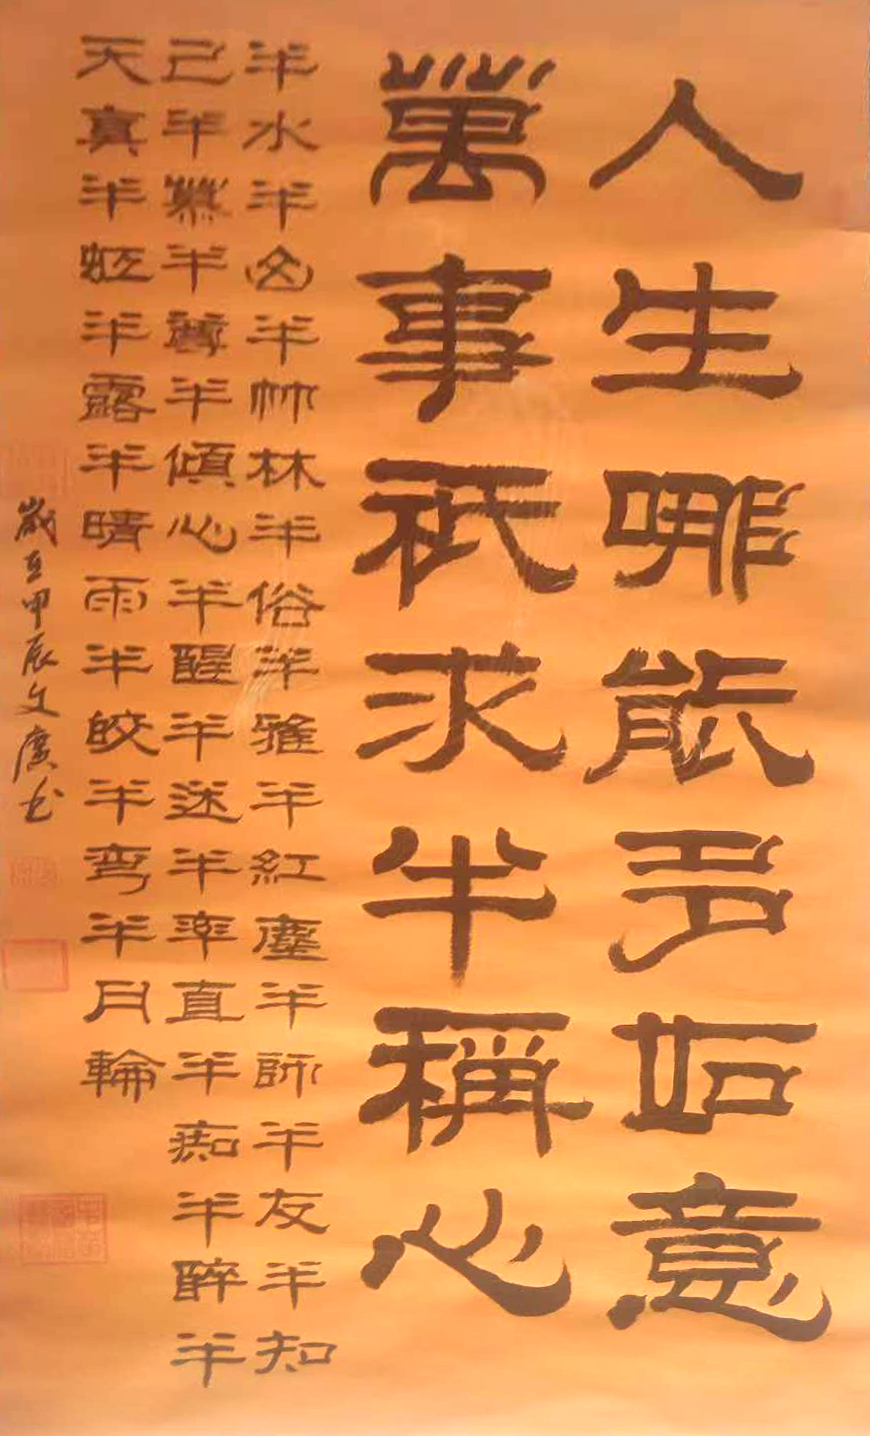 人生哪能多如意
萬事祇求半稱心
半水半山半竹林半俗半雅半紅塵半師半友半知
己半慕半尊半傾心半醒半迷半率直半痴半醉半
天真半虹半露半晴雨半皎半彎半月輪
歲在甲辰文廣書